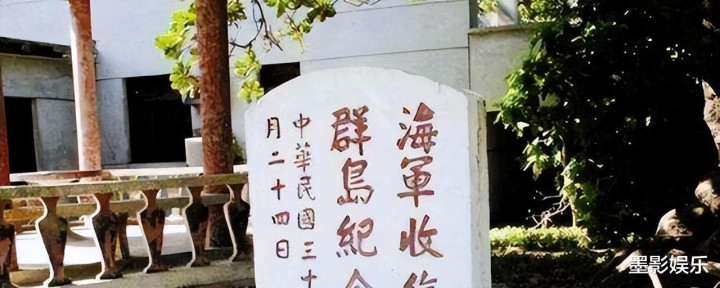 海軍收
群島紀
中華民國三十
月二十四日
墨影娱乐